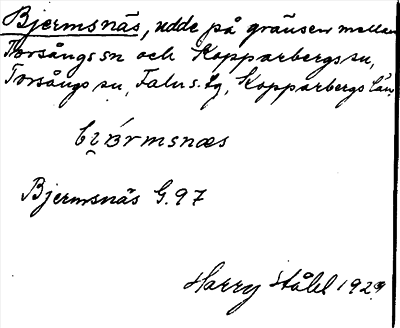 Bjermsnäs, udde på gränsen mellan
Torsångs sn och Kopparbergs sn,
Torsångs sn, Falu s. tg, Kopparbergs län
Bjermsnäs G. 97
Harry Ståhl 1929